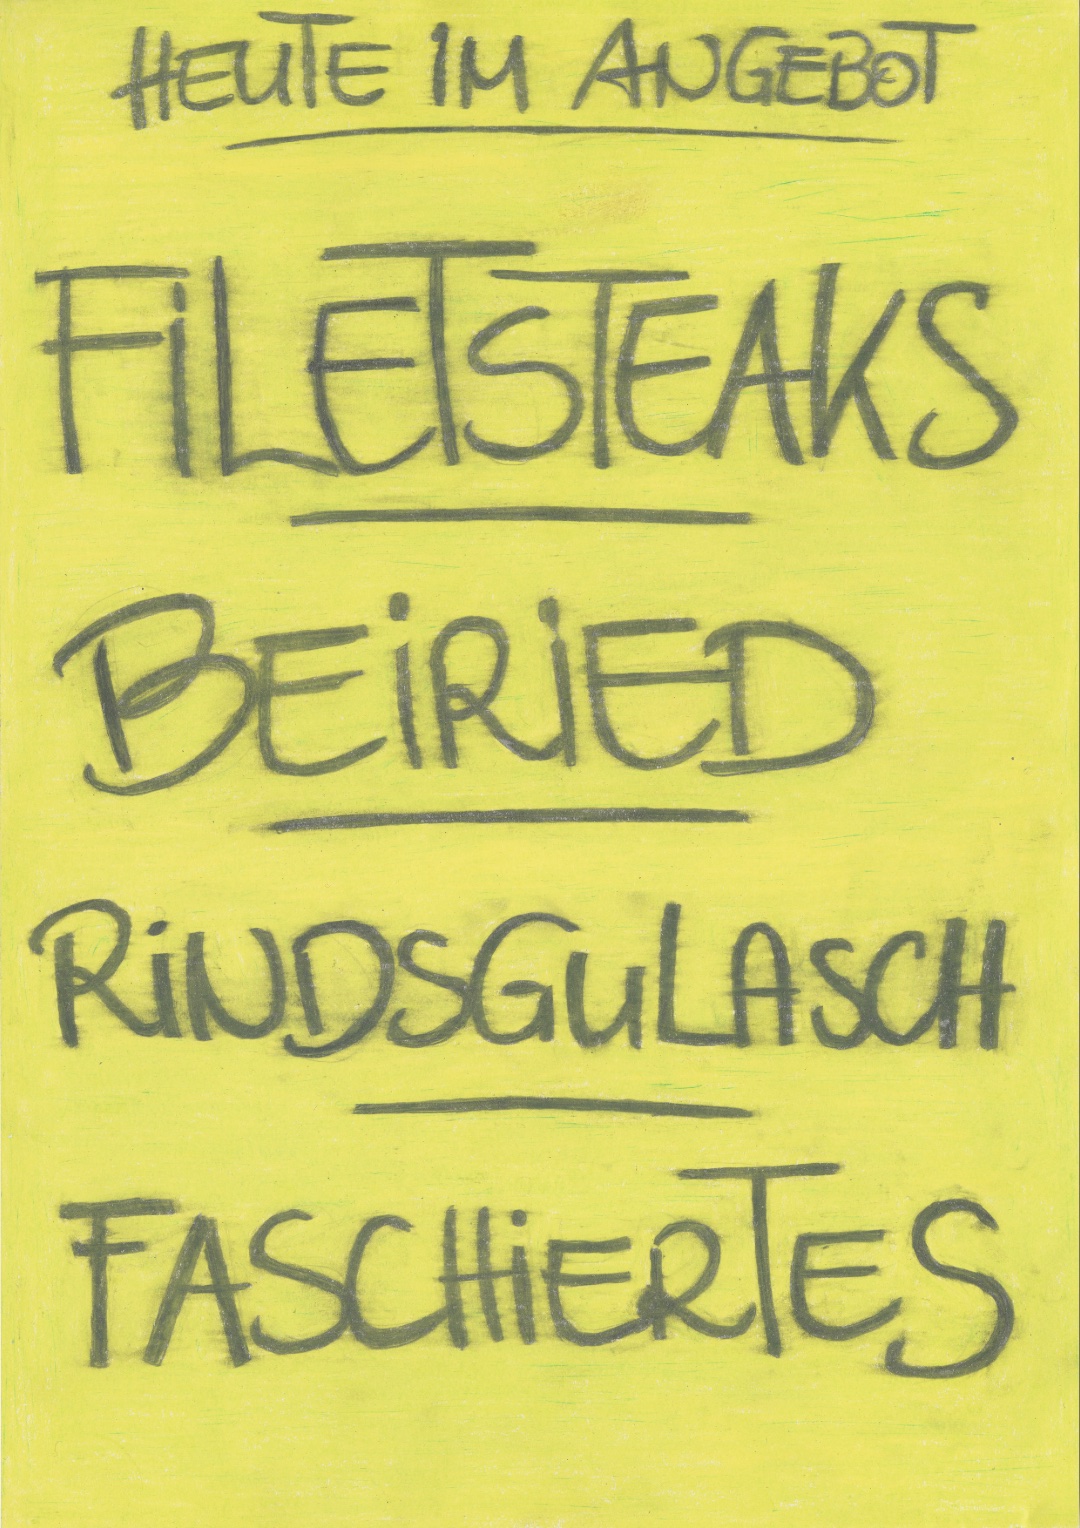 HEUTE IM ANGEBOT
FiLETSTEAKS
BEiRiED
RiNDSGULASCH
FASCHiERTES